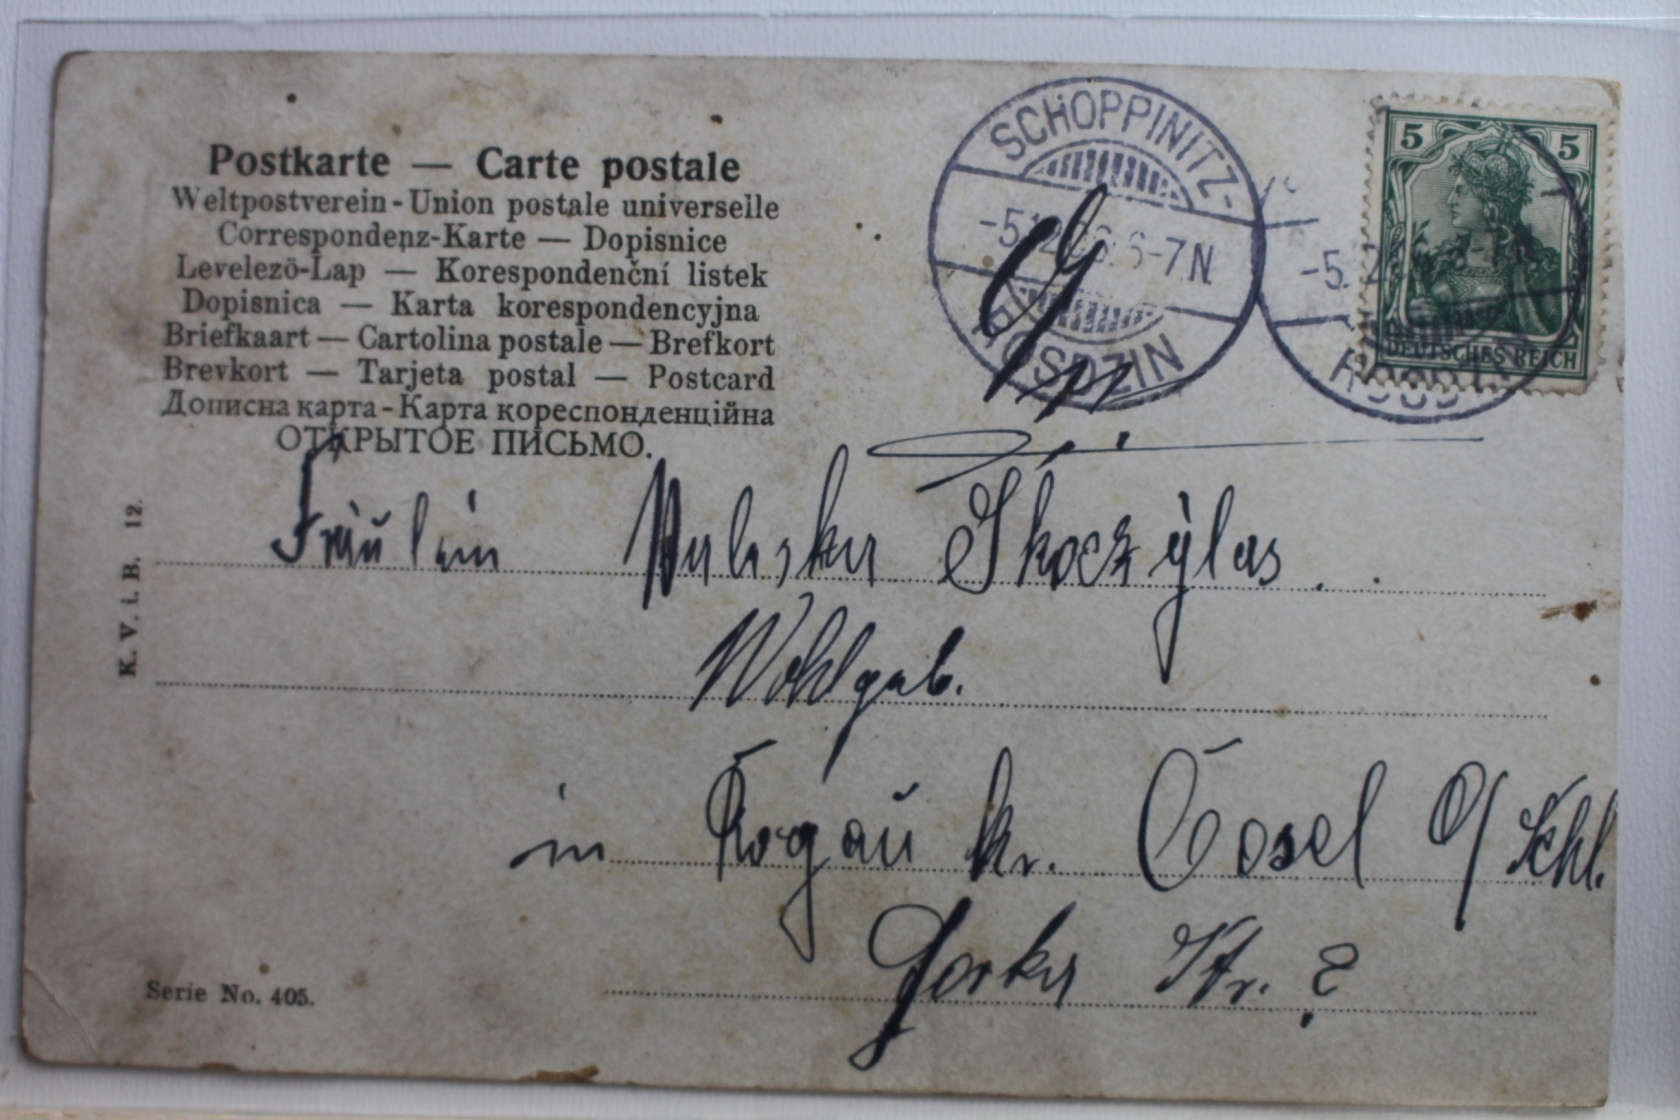 Postkarte — Carte postale
Weltpostverein - Union postale universelle
Correspondenz-Karte — Dopisnice
Levelezö-Lap — Korespondenční listek
Dopisnica — Karta korespondencyjna
Briefkaart — Cartolina postale — Brefkort
Brevkort — Tarjeta postal — Postcard
Дописна карта - Карта кореспонденційна
ОТКРЫТОЕ ПИСЬМО.
SCHOPPINITZ-
6-7N
ROSDZIN
5 5
DEUTSCHES REICH
K. V. i. B. 12.
Fräulein Skoczylas.
Wohlgeb.
in Rogau kr. Cosel O/Schl.
Str. 2
Serie No. 405.